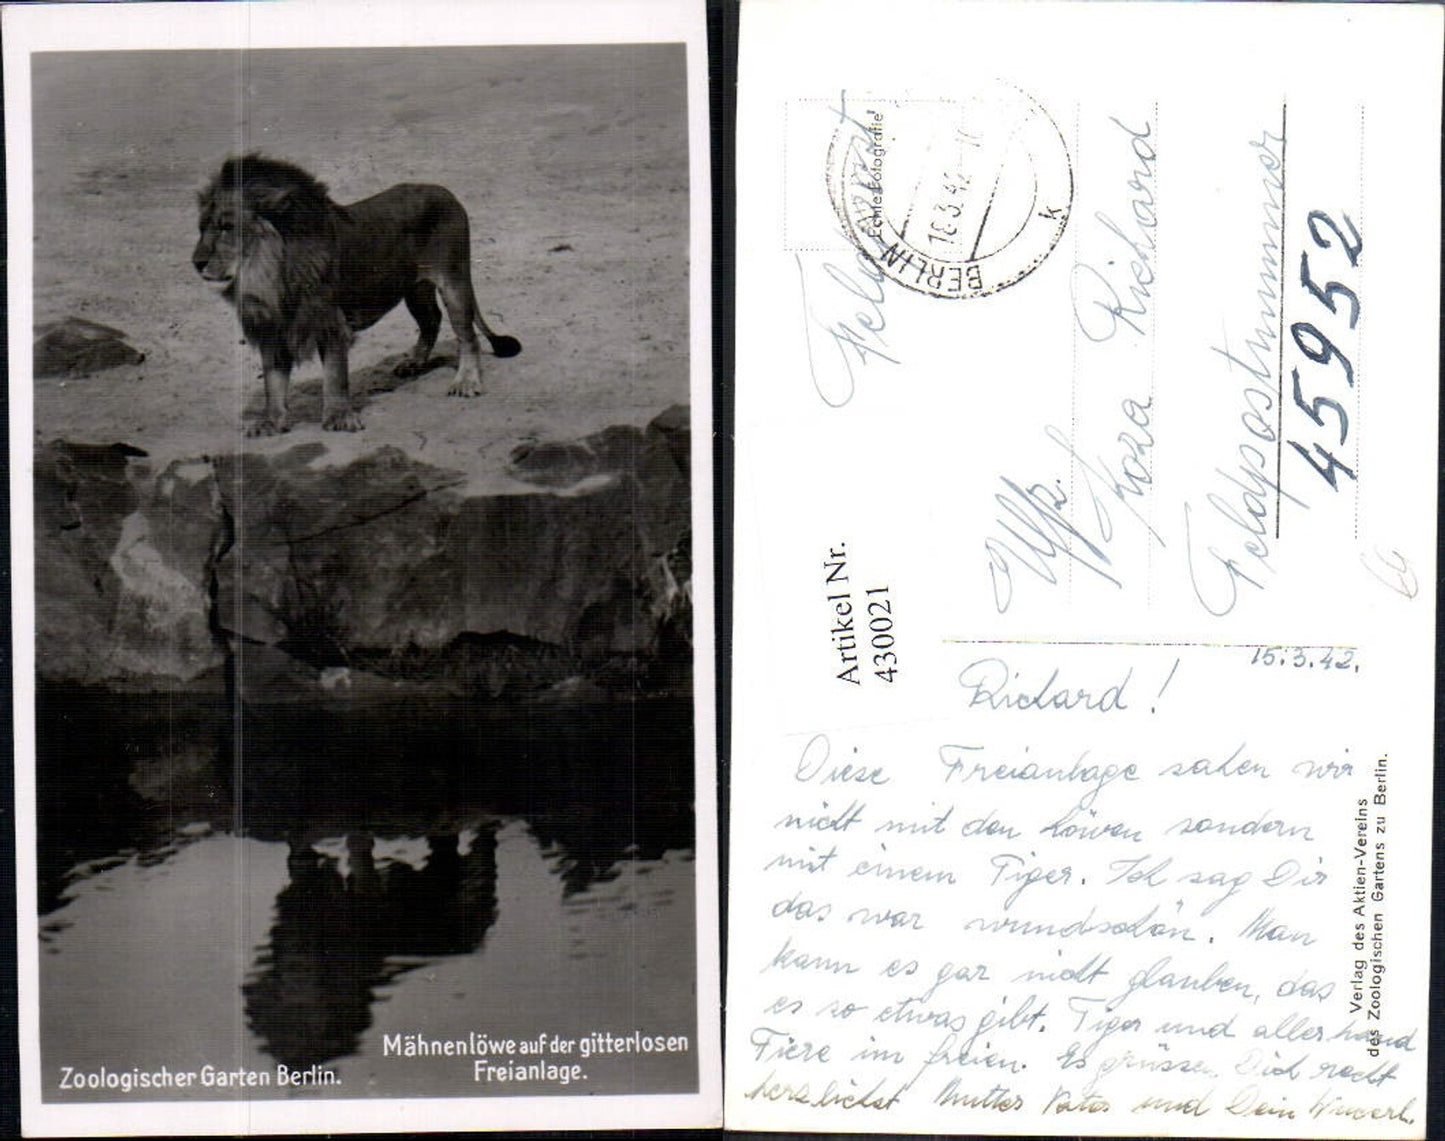 Zoologischer Garten Berlin.
Mähnenlöwe auf der gitterlosen
Freianlage.
Feldpost
Echte Fotografie!
BERLIN
18.3.42
k
Uffz.
Koza Richard
Feldpostnummer
45952
Artikel Nr.
430021
66
15.3.42.
Richard!
Diese Freianlage sahen wir
nicht mit den Löwen sondern
mit einem Tiger. Ich sag Dir
das war wundschön. Man
kann es gar nicht glauben, das
es so etwas gibt. Tiger und aller hand
Tiere im freien. Es grüssen Dich recht
herzlichst Mutter Vater und Dein
Verlag des Aktien-Vereins
des Zoologischen Gartens zu Berlin.